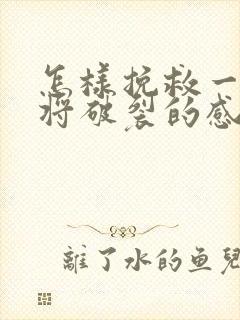 怎樣挽救一
將破裂的感
離了水的鱼兒